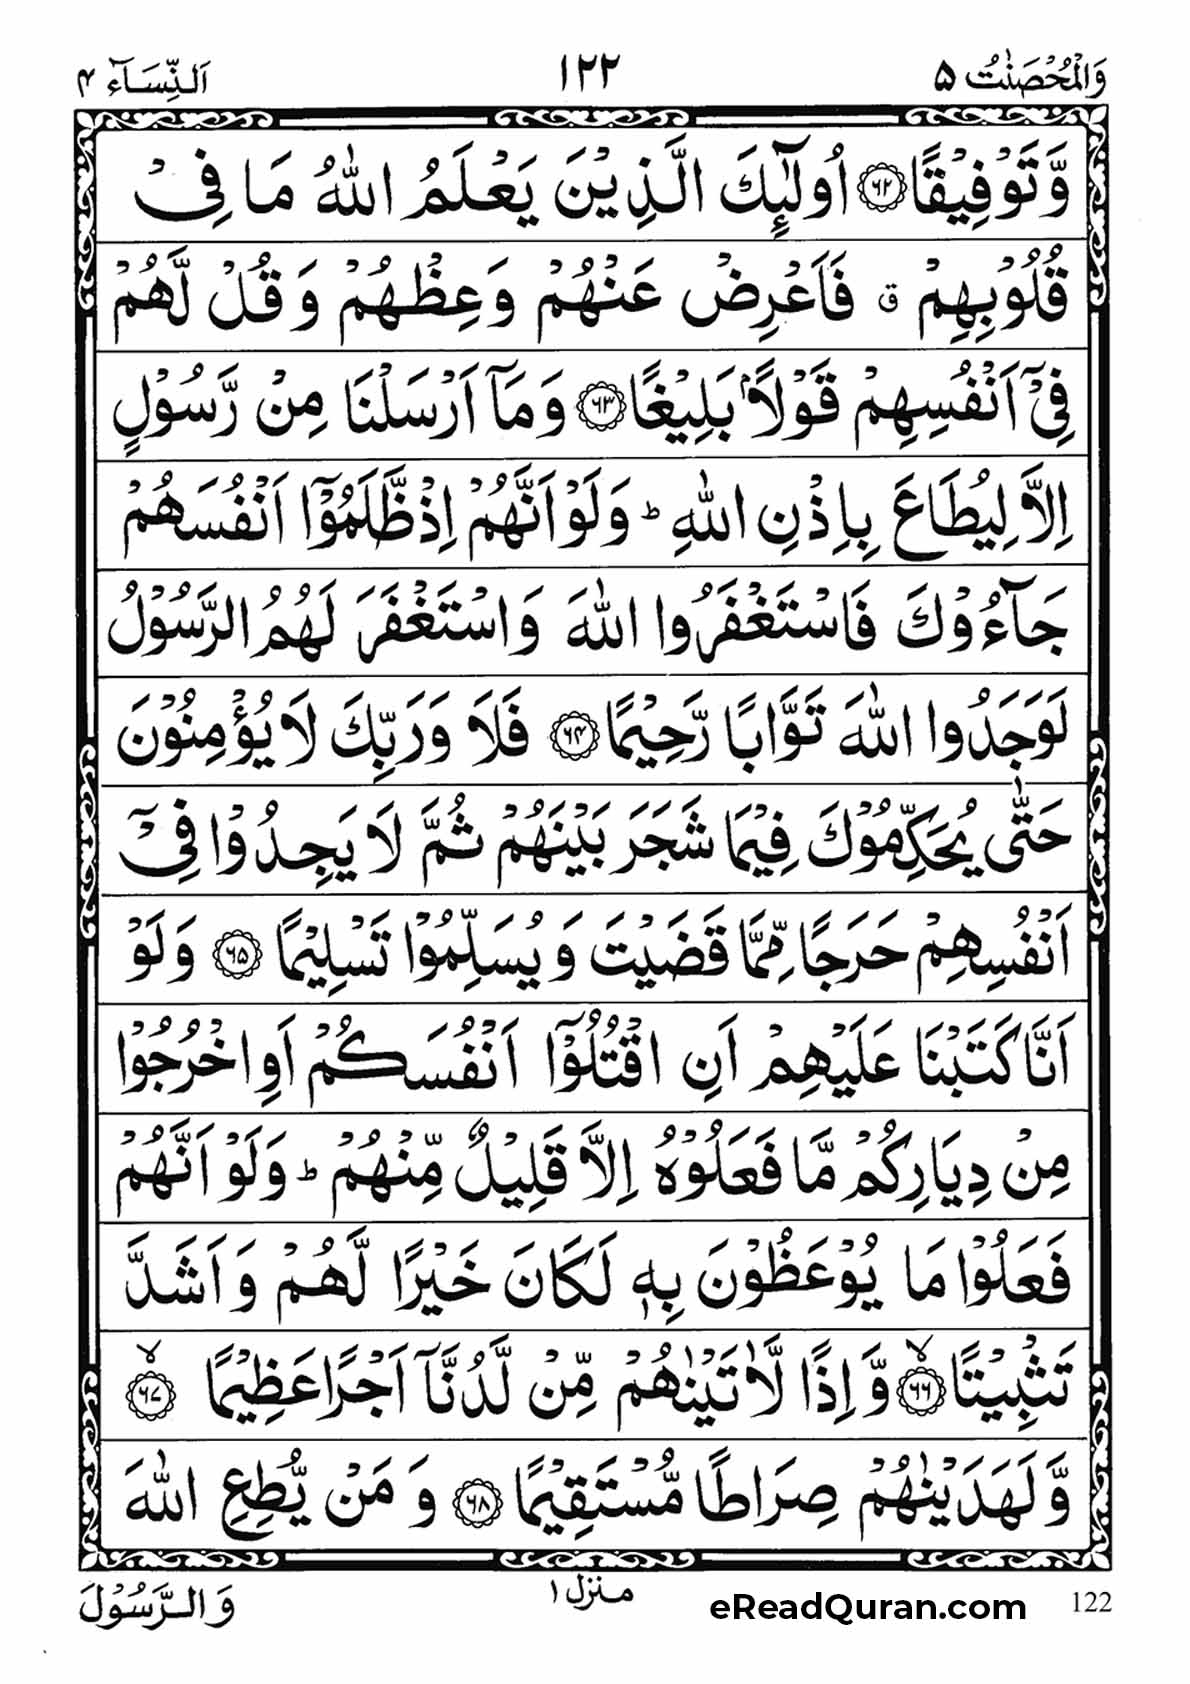 وَالْمُحْصَنٰتُ ۵
۱۲۲
اَلنِّسَآء ۴
وَّتَوْفِيْقًا ﴿۶۲﴾ اُولٰٓئِكَ الَّذِيْنَ يَعْلَمُ اللّٰهُ مَا فِیْ
قُلُوْبِهِمْ ق فَاَعْرِضْ عَنْهُمْ وَعِظْهُمْ وَ قُلْ لَّهُمْ
فِیْۤ اَنْفُسِهِمْ قَوْلًاۢ بَلِيْغًا ﴿۶۳﴾ وَ مَاۤ اَرْسَلْنَا مِنْ رَّسُوْلٍ
اِلَّا لِيُطَاعَ بِاِذْنِ اللّٰهِ ؕ وَلَوْ اَنَّهُمْ اِذْ ظَّلَمُوْۤا اَنْفُسَهُمْ
جَآءُوْكَ فَاسْتَغْفَرُوا اللّٰهَ وَاسْتَغْفَرَ لَهُمُ الرَّسُوْلُ
لَوَجَدُوا اللّٰهَ تَوَّابًا رَّحِيْمًا ﴿۶۴﴾ فَلَا وَرَبِّكَ لَا يُؤْمِنُوْنَ
حَتّٰى يُحَكِّمُوْكَ فِيْمَا شَجَرَ بَيْنَهُمْ ثُمَّ لَا يَجِدُوْا فِیْۤ
اَنْفُسِهِمْ حَرَجًا مِّمَّا قَضَيْتَ وَ يُسَلِّمُوْا تَسْلِيْمًا ﴿۶۵﴾ وَلَوْ
اَنَّا كَتَبْنَا عَلَيْهِمْ اَنِ اقْتُلُوْۤا اَنْفُسَكُمْ اَوِ اخْرُجُوْا
مِنْ دِيَارِكُمْ مَّا فَعَلُوْهُ اِلَّا قَلِيْلٌ مِّنْهُمْ ؕ وَلَوْ اَنَّهُمْ
فَعَلُوْا مَا يُوْعَظُوْنَ بِهٖ لَكَانَ خَيْرًا لَّهُمْ وَ اَشَدَّ
تَثْبِيْتًا ﴿۶۶﴾ۙ وَّ اِذًا لَّاٰتَيْنٰهُمْ مِّنْ لَّدُنَّاۤ اَجْرًا عَظِيْمًا ﴿۶۷﴾ۙ
وَّلَهَدَيْنٰهُمْ صِرَاطًا مُّسْتَقِيْمًا ﴿۶۸﴾ وَ مَنْ يُّطِعِ اللّٰهَ
وَ الرَّسُوْلَ
منزل ۱
eReadQuran.com
122